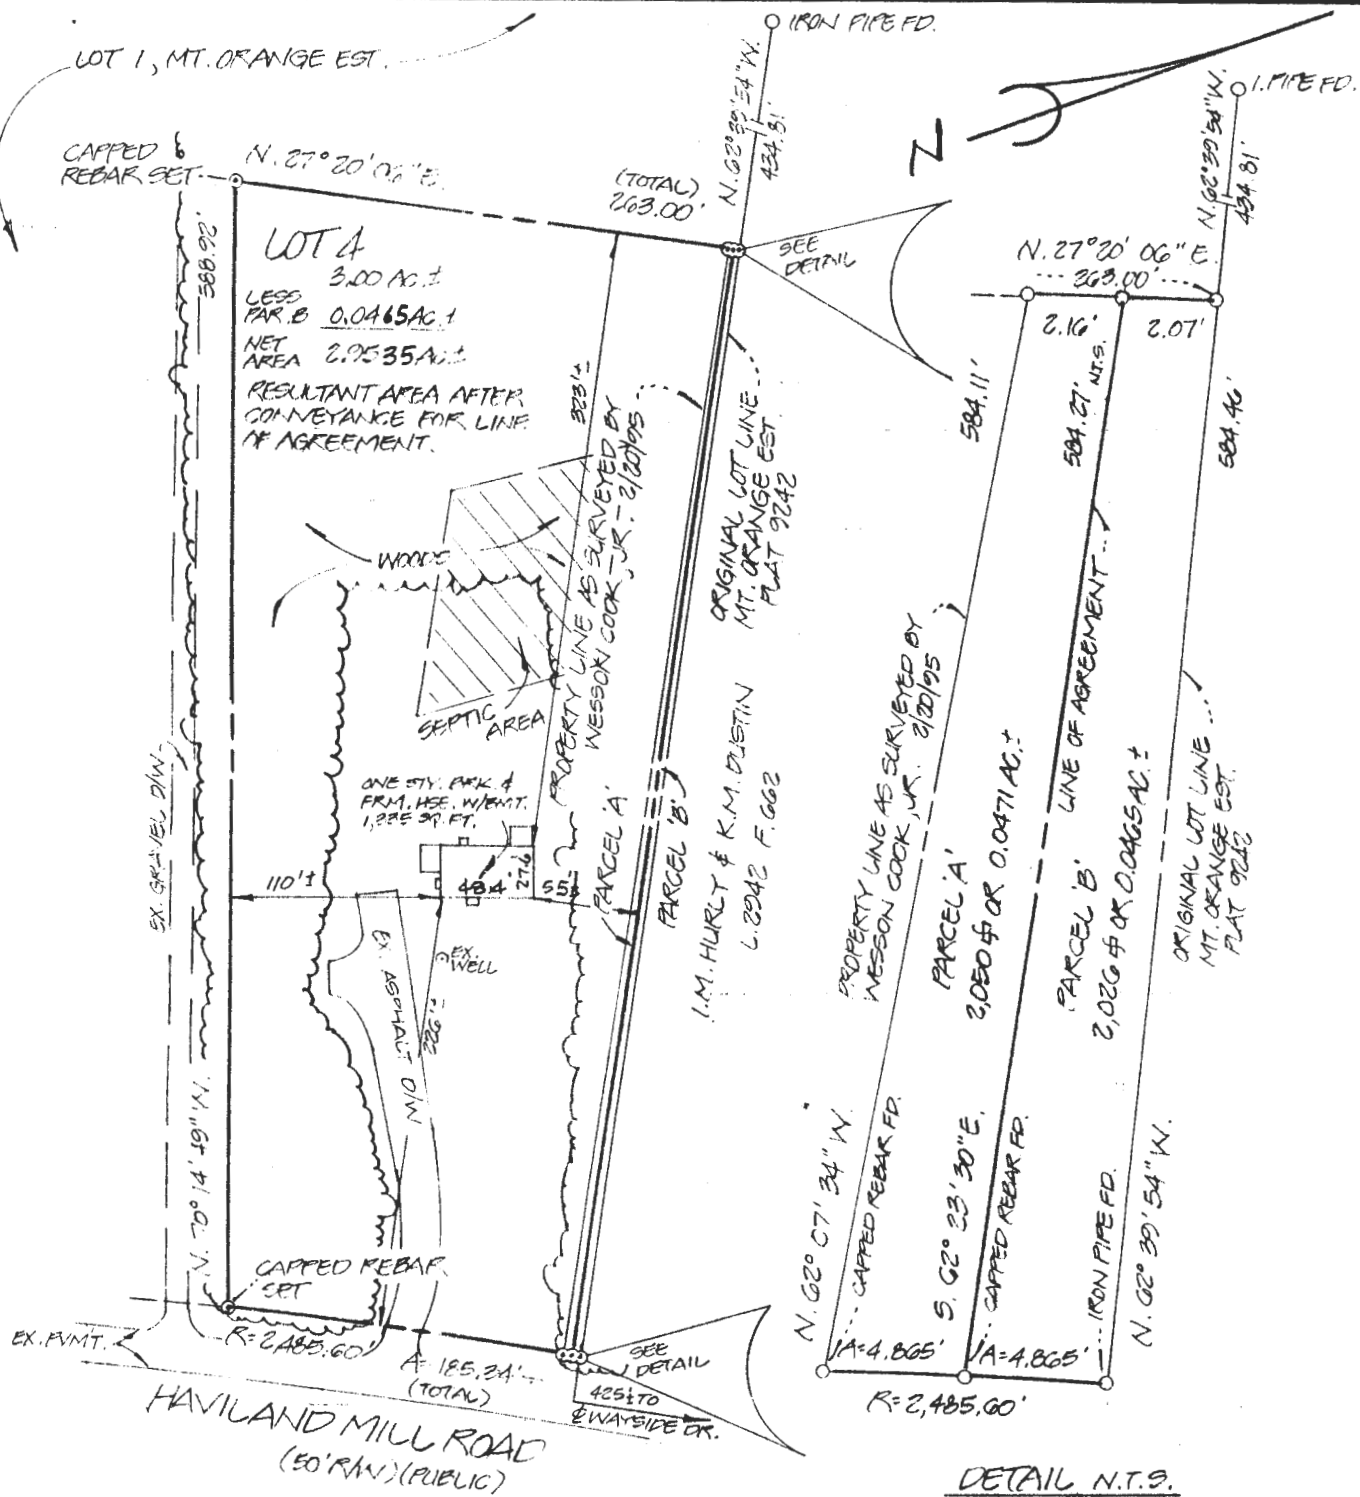 LOT 1, MT. ORANGE EST.
IRON PIPE FD.
I. PIPE FD.
CAPPED
REBAR SET
N. 27° 20' 06" E.
(TOTAL)
263.00'
N. 62° 39' 54" W.
434.81'
N. 62° 39' 54" W.
434.81'
N
SEE
DETAIL
N. 27° 20' 06" E.
263.00'
2.16'
2.07'
588.26'
LOT 4
3.00 AC.±
LESS
PAR. B 0.0465 AC.±
NET
AREA 2.9535 AC.±
RESULTANT AREA AFTER
CONVEYANCE FOR LINE
OF AGREEMENT.
323'±
584.11'
584.27' N.T.S.
584.46'
WOODS
SEPTIC
AREA
PROPERTY LINE AS SURVEYED BY
WESSON COOK, JR. - 2/20/95
ORIGINAL LOT LINE
MT. ORANGE EST.
PLAT 9242
ONE STY. BRK. &
FRM. HSE. W/BMT.
SQ. FT.
EX. GRAVEL D/W
110'±
48.4'
27.6
55±
PARCEL 'A'
PARCEL 'B'
I.M. HURLY & K.M. DUSTIN
L. 2942 F. 662
EX.
WELL
EX. ASPHALT D/W
226'±
PROPERTY LINE AS SURVEYED BY
WESSON COOK, JR. 2/20/95
PARCEL 'A'
2,050 ⏍ OR 0.0471 AC.±
LINE OF AGREEMENT
PARCEL 'B'
2,026 ⏍ OR 0.0465 AC.±
ORIGINAL LOT LINE
MT. ORANGE EST.
PLAT 9242
N. 62° 07' 34" W.
CAPPED REBAR FD.
S. 62° 23' 30" E.
CAPPED REBAR FD.
IRON PIPE FD.
N. 62° 39' 54" W.
CAPPED REBAR
SET
EX. PVMT.
R=2,485.60'
A=185.34'
(TOTAL)
SEE
DETAIL
425± TO
℄ WAYSIDE DR.
A=4.865'
A=4.865'
R=2,485.60'
HAVILAND MILL ROAD
(50' R/W) (PUBLIC)
DETAIL N.T.S.